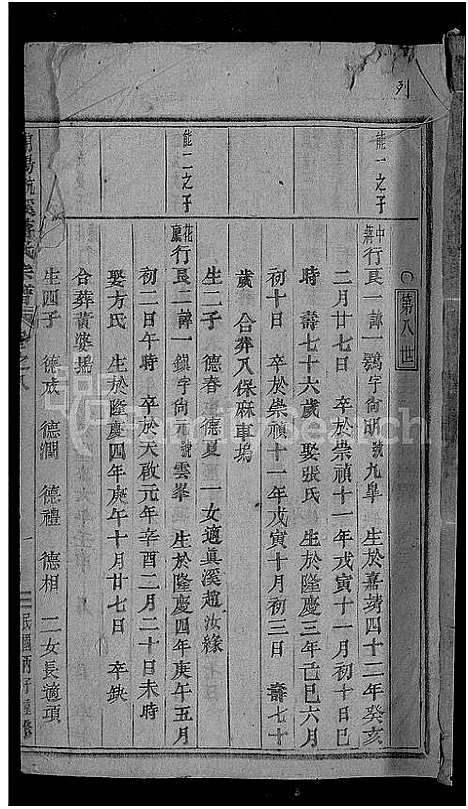 列
第八世
能一之子
中葬 行艮一諱一鶚字尙明號九臯 生於嘉靖四十二年癸亥
二月廿七日 卒於崇禎十一年戊寅十一月初十日巳
時 壽七十六歲 娶張氏 生於隆慶三年己巳六月
初十日 卒於崇禎十一年戊寅十月初三日 壽七十
歲 合葬八保麻車塢
生二子 德春 德夏 一女適真溪趙汝緣
能二之子
花廳 行艮二諱一鎮字尙元號雲峯 生於隆慶四年庚午五月
初二日午時 卒於天啟元年辛酉二月二十日未時
娶方氏 生於隆慶四年庚午十月廿七日 卒缺
合葬黃婆塢
生四子 德戒 德潤 德禮 德相 二女長適項
宗譜 卷之八
一
民國丙子重修
FamilySearch